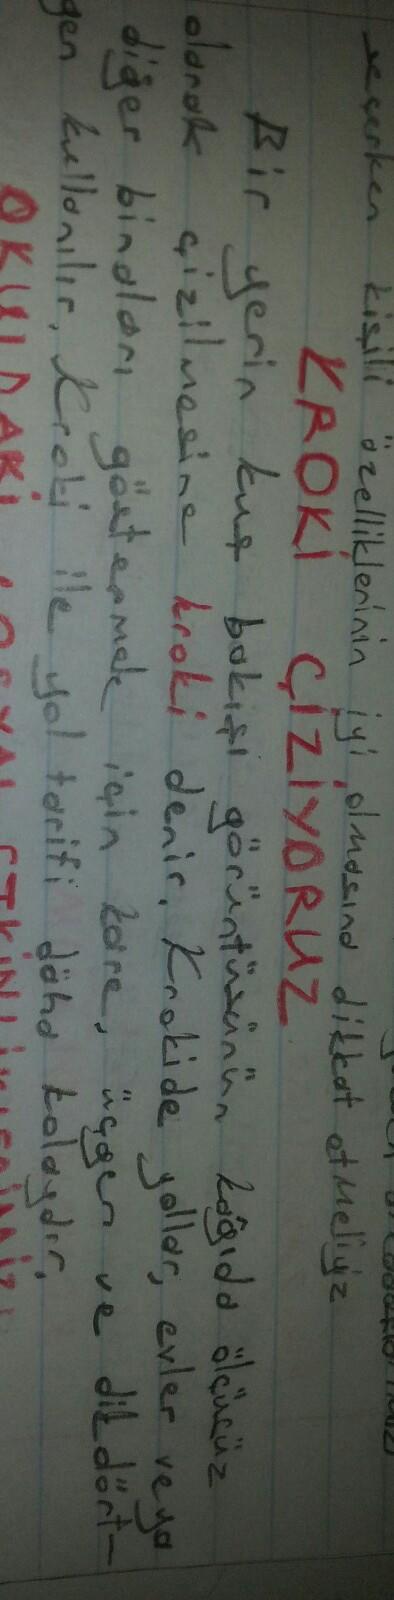 seçerken kişilik özelliklerinin iyi olmasına dikkat etmeliyiz
KROKİ ÇİZİYORUZ
Bir yerin kuş bakışı görüntüsünün kağıda ölçüsüz
olarak çizilmesine kroki denir. Krokide yollar, evler veya
diğer binaları göstermek için kare, üçgen ve dikdört-
gen kullanılır. Kroki ile yol tarifi daha kolaydır.
OKULDAKİ SOSYAL ETKİNLİKLERİMİZ